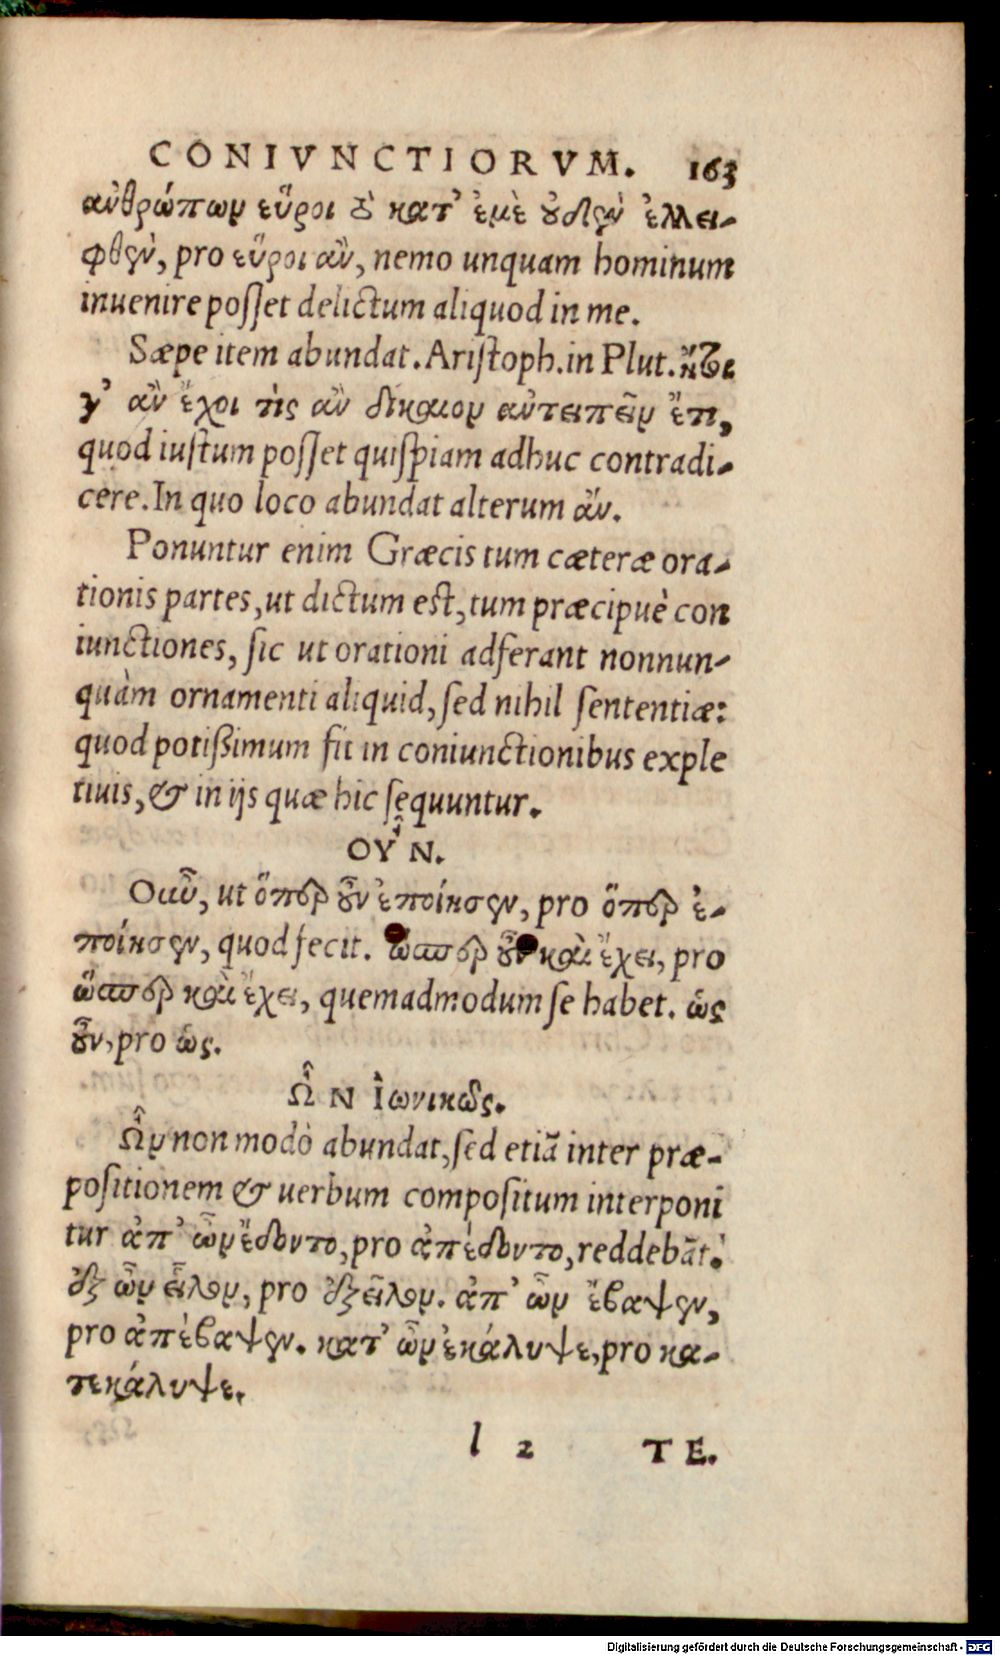 CONIVNCTIORVM. 163
ἀνθρώπων εὕροι τὸ κατ' ἐμὲ οὐδὲν ἐλλει-
φθὲν, pro εὕροι ἂν, nemo unquam hominum
inuenire posset delictum aliquod in me.
Sæpe item abundat. Aristoph. in Plut.
γ' ἂν ἔχοι τὶς ἂν δίκαιον αὐτειπεῖν ἔτι,
quod iustum posset quispiam adhuc contradi-
cere. In quo loco abundat alterum ἄν.
Ponuntur enim Græcis tum cæteræ ora-
tionis partes, ut dictum est, tum præcipuè con
iunctiones, sic ut orationi adferant nonnun-
quàm ornamenti aliquid, sed nihil sententiæ:
quod potißimum fit in coniunctionibus exple
tiuis, & in ijs quæ hic sequuntur.
ΟΥ͂Ν.
ut ὅπερ οὖν ἐποίησεν, pro ὅπερ ἐ-
ποίησεν, quod fecit. ὥσπερ οὖν καὶ ἔχει, pro
ὥσπερ καὶ ἔχει, quemadmodum se habet. ὡς
οὖν, pro ὡς.
ὮΝ Ἰωνικῶς.
Ὦν non modò abundat, sed etiã inter præ-
positionem & uerbum compositum interponi
tur ἀπ' ὦν ἔδοντο, pro ἀπέδοντο, reddebãt.
ἐξ ὦν εἷλον, pro ἐξεῖλον. ἀπ' ὦν ἔβαψεν,
pro ἀπέβαψεν. κατ' ὦν ἐκάλυψε, pro κα-
τεκάλυψε.
l 2 ΤΕ.
Digitalisierung gefördert durch die Deutsche Forschungsgemeinschaft - DFG